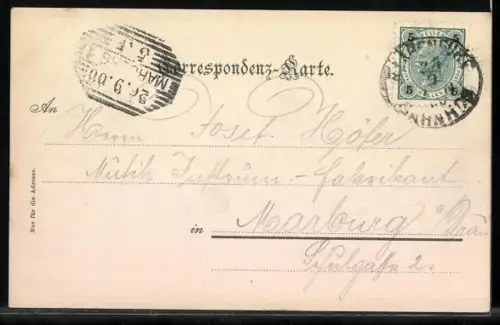 26.9.00
MARBURG
Correspondenz-Karte.
5 5
BAHNHOF
An
Herrn Josef Höfer
Musik Instrum.-fabrikant
in Marburg a/Drau
Schulgasse 2.
Nur für die Adresse.